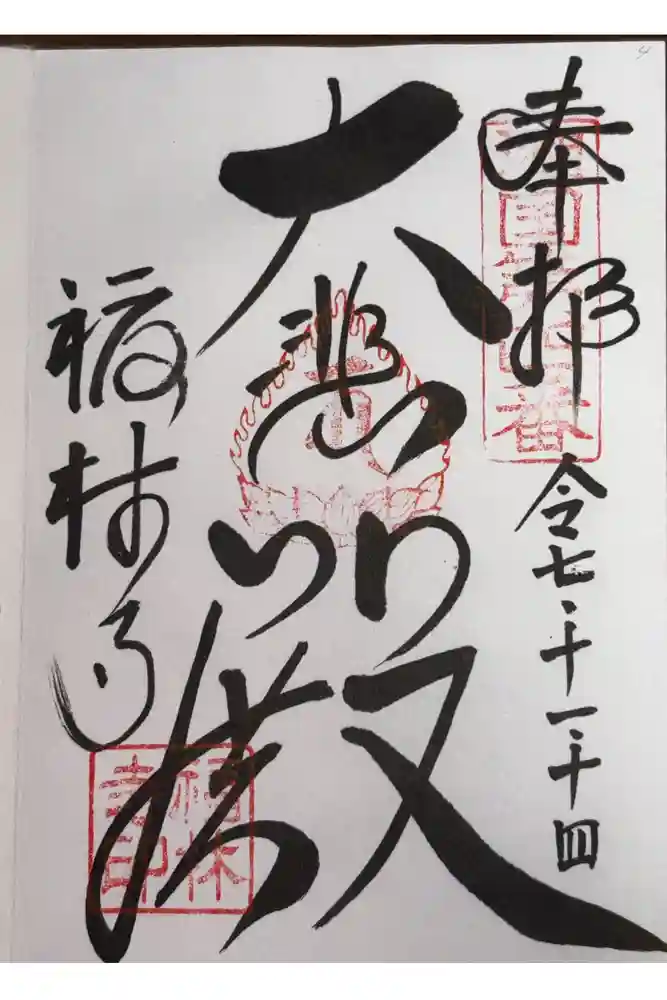 4
奉拝
令七・十一・十四
大悲殿
福林寺
福林
寺印